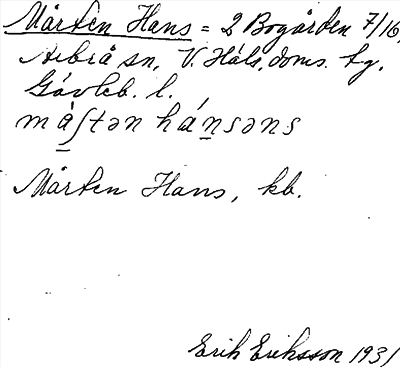 Mårten Hans = 2 Bogården 7/16,
Arbrå sn, V. Häls. doms. tg.
Gävleb. l.
mа̀ʃtən hánsəns
Mårten Hans, kb.
Erik Eriksson 1931